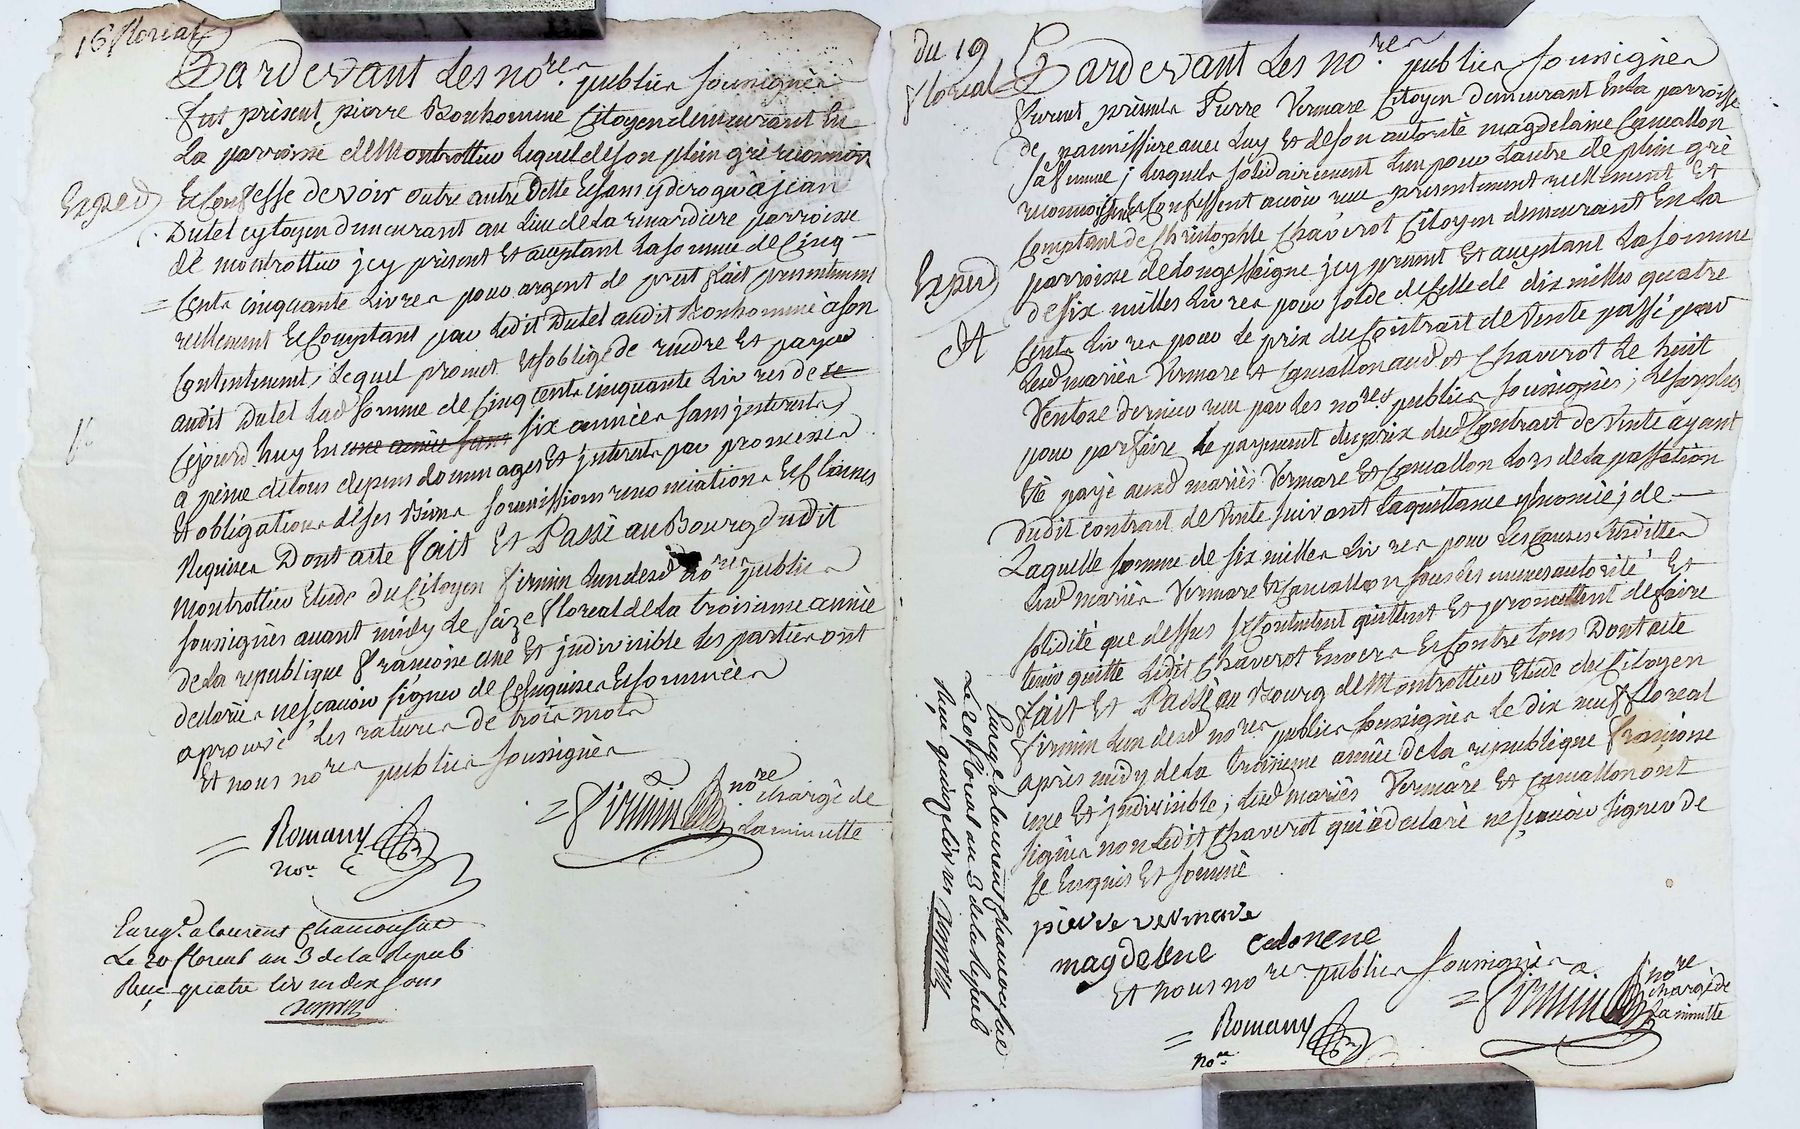 16 floreal
Pardevant Les no.res publics soussignés
fut présent pierre Bonhomme Citoyen demeurant En
La parroisse de Montrottier Lequel de son plein gré reconnoit
Exped
Et Confesse devoir outre autre dette Et sans y derroger à jean
Dutel cytoyen demeurant au Lieu de La renardiere parroisse
de montrottier jcy présent Et aceptant La somme de Cinq
Cents cinquante Livres pour argent de prêt fait presentement
reellement Et Comptant par Ledit Dutel audit Bonhomme à son
Contentement, Lequel promet Et s'oblige de rendre Et payer
audit Dutel Lad somme de Cinq Cents cinquante Livres de ce
Cejourd'huy En une année sans six années sans jnterets
a peine de tous depens dommages Et jnterets par promesses
Et obligations de ses Biens soumissions renonciations Et Clauses
Requises Dont acte fait Et Passé au Bourg dudit
Montrottier Etude du Citoyen firmin L'un desd no.res publics
soussignés avant midy Le seize floreal de La troisieme année
de La republique françoise une Et jndivisible Les parties ont
declarées ne sçavoir signer de Ce Enquises Et sommées
aprouvé les ratures de trois mots
Et nous no.res publics soussignés
= Romany
No.re
= firmin no.re
chargé de
La minutte
Enreg.é a Laurent Chamousset
Le 20 floreal an 3 de la Repub
Reçu quatre liv un dix sous
du 19
floreal
Pardevant Les no.res publics soussignés
furent présents Pierre Vermare Citoyen demeurant En La parroisse
de panissiere avec Luy Et de son autorité magdelaine Camallon
sa femme; Lesquels solidairement L'un pour L'autre de plein gré
reconnoissent Et Confessent avoir reçu presentement reellement Et
Comptant de Christophle Chaverot Citoyen demeurant En La
Exped
parroisse de Longessaigne jcy present Et aceptant La somme
de six milles Livres pour solde de Celle de dix milles quatre
Cents Livres pour Le prix du Contrart de Vente passé par
Lesd mariés Vermare Et Camallon aud Chaverot Le huit
Ventose dernier reçu par Les no.res publics soussignés; Le surplus
pour parfaire Le payement du prix dud Contrart de Vente ayant
Eté payé ausd mariés Vermare Et Camallon Lors de La passation
dudit contrart de Vente suivant La quittance y Enoncée; de
Laquelle somme de six milles Livres pour Les Causes susdittes
Lesd mariés Vermare Et Camallon sous Les mêmes autorité Et
solidité que dessus se Contentent quittent Et promettent de faire
tenir quitte Ledit Chaverot Envers Et Contre tous Dont acte
fait Et Passé au Bourg de Montrottier Etude du Citoyen
firmin L'un desd no.res publics soussignés le dix neuf floreal
après midy de La troisieme année de La republique françoise
une Et jndivisible; Lesd mariés Vermare Et Camallon ont
signés non Ledit Chaverot qui a declaré ne sçavoir signer de
Ce Enquis Et sommé
pierre vermare
magdelene
Et nous no.res publics soussignés
= Romany
No.re
= firmin no.re
chargé de
La minutte
Enreg.é a Laurent chamousset
Le 20 floreal an 3 de la Repub
Reçu quinze livres